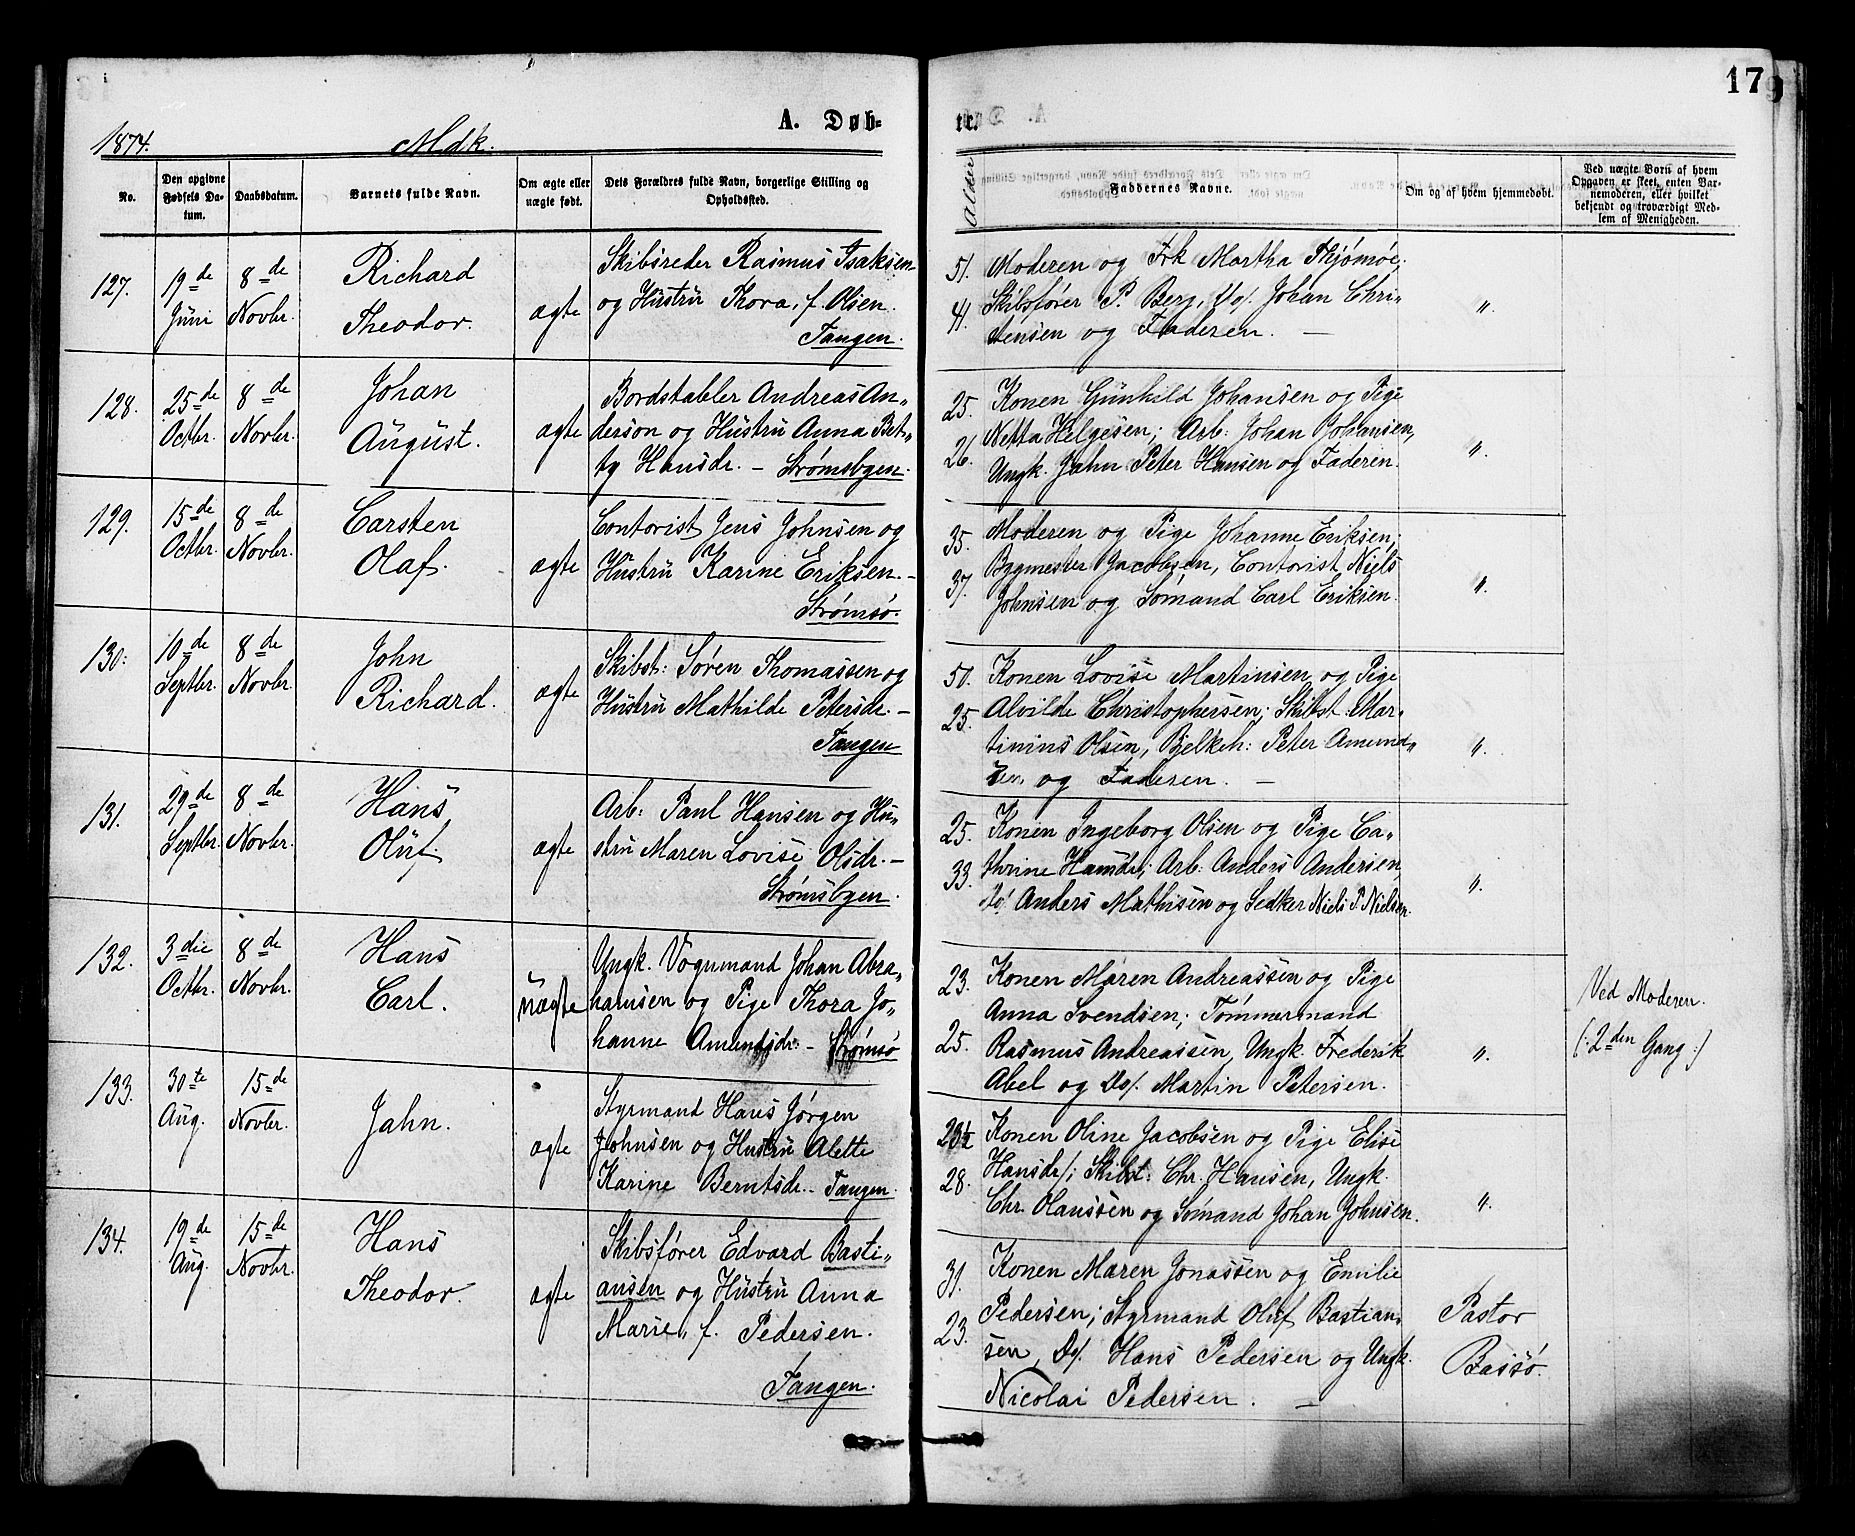 17
1874. Mdk. A. Døb- te.
No.
Den opgivne Fødsels Da-tum.
Daabsdatum.
Barnets fulde Navn.
Om ægte eller nægte født.
Dets Forældres fulde Navn, borgerlige Stilling og Opholdsted.
Alder
Faddernes Navne.
Om og af hvem hjemmedøbt.
Ved nægte Børn af hvem Opgaven er skeet, enten Bar-nemoderen, eller hvilket bekjendt og troværdigt Med-lem af Menigheden.
127.
19de Juni
8de Novbr.
Richard
Theodor.
ægte
Skibsreder Rasmus Isaksen
og Hustru Thora, f. Olsen.
Tangen.
51.
41.
Moderen og Frk Martha Thjømøe;
Skibsfører P. Berg, Do/. Johan Chri-
stensen og Faderen. —
"
128.
25de Octbr.
8de Novbr.
Johan
August.
ægte
Bordstabler Andreas An-
derson og Hustru Anna Bet-
ty Hansdr. — Strømsbgen.
25.
26.
Konen Gunhild Johansen og Pige
Netta Helgesen; Arb: Johan Johansen,
Ungk. Jahn Peter Hansen og Faderen.
"
129.
15de Octbr.
8de Novbr.
Carsten
Olaf.
ægte
Contorist Jens Johnsen og
Hustru Karine Eriksen. —
Strømsø.
35.
37.
Moderen og Pige Johanne Eriksen;
Bygmester Jacobsen, Contorist Niels
Johnsen og Sømand Carl Eriksen.
"
130.
10de Septbr.
8de Novbr.
John
Richard.
ægte
Skibst: Søren Thomassen og
Hustru Mathilde Petersdr. —
Tangen
50.
25.
Konen Lovise Martinsen og Pige
Alvilde Christophersen; Skibst: Mar-
tinius Olsen, Bjelkeh: Peter Amund-
sen og Faderen. —
"
131.
29de Septbr.
8de Novbr.
Hans
Oluf.
ægte
Arb: Paul Hansen og Hu-
stru Maren Lovise Olsdr. —
Strømsbgen.
25.
33.
Konen Ingeborg Olsen og Pige Ca-
thrine Hansdr; Arb: Anders Andersen,
Anders Mathisen og Niels P. Nielsen.
"
132.
3die Octbr.
8de Novbr.
Hans
Carl.
uægte
Ungk. Vognmand Johan Abra-
hamsen og Pige Thora Jo-
hanne Amundsdr. — Strømsø
23.
25.
Konen Maren Andreassen og Pige
Anna Svendsen; Tømmermand
Rasmus Andreassen, Ungk. Frederik
Abel og Do/. Martin Petersen.
"
Ved Moderen.
(: 2den Gang :)
133.
30te Aug.
15de Novbr.
Jahn.
ægte
Styrmand Hans Jørgen
Johnsen og Hustru Alette
Karine Berntsdr. — Tangen.
23½
28.
Konen Oline Jacobsen og Pige Elise
Hansdr/; Skibst: Chr. Hansen, Ungk.
Chr. Olaussen og Sømand Johan Johnsen.
"
134.
19de Aug.
15de Novbr.
Hans
Theodor.
ægte
Skibsfører Edvard Basti-
ansen og Hustru Anna
Marie, f. Pedersen.
Tangen.
31.
23.
Konen Maren Jonassen og Emilie
Pedersen; Styrmand Oluf Bastian-
sen, Do/. Hans Pedersen og Ungk.
Nicolai Pedersen. —
Pastor
Bassø.